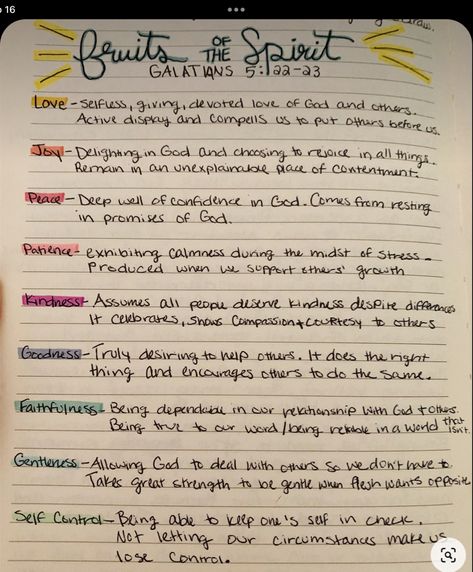 16
draw.
fruits OF THE Spirit
GALATIANS 5:22-23
Love - selfless, giving, devoted love of God and others.
Active display and compells us to put others before us.
Joy - Delighting in God and choosing to rejoice in all things.
Remain in an unexplainable place of contentment.
Peace - Deep well of confidence in God. Comes from resting
in promises of God.
Patience - exhibiting calmness during the midst of stress.
Produced when we support others' growth
Kindness - Assumes all people deserve kindness despite differences
It celebrates, shows compassion + courtesy to others
Goodness - Truly desiring to help others. It does the right
thing and encourages others to do the same.
Faithfulness - Being dependable in our relationship with God + others.
Being true to our word / being reliable in a world that isn't.
Gentleness - Allowing God to deal with others so we don't have to.
Takes great strength to be gentle when flesh wants opposite
Self Control - Being able to keep one's self in check.
Not letting our circumstances make us
lose control.